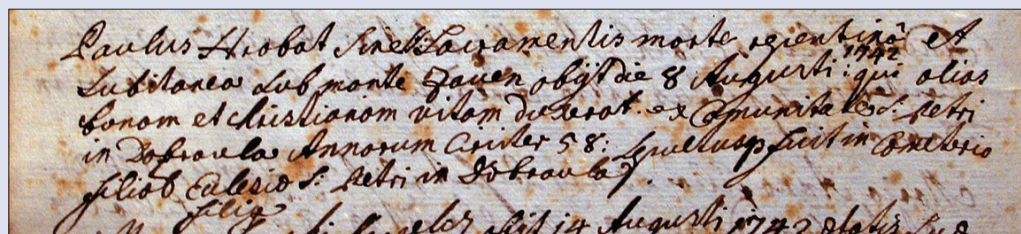 Paulus Hrobat sine Sacramentis morte repentinâ et
subitanea sub monte Zauen obijt die 8 Augusti 1742 : qui alias
bonam et christianam vitam duxerat. ex Comunitate S: Petri
in Dobraula Annorum Circiter 58: Sepultusq fuit in Cometerio
filiab Eclesio S: Petri in Dobraula
filiq
obijt 14 Augusti 1742